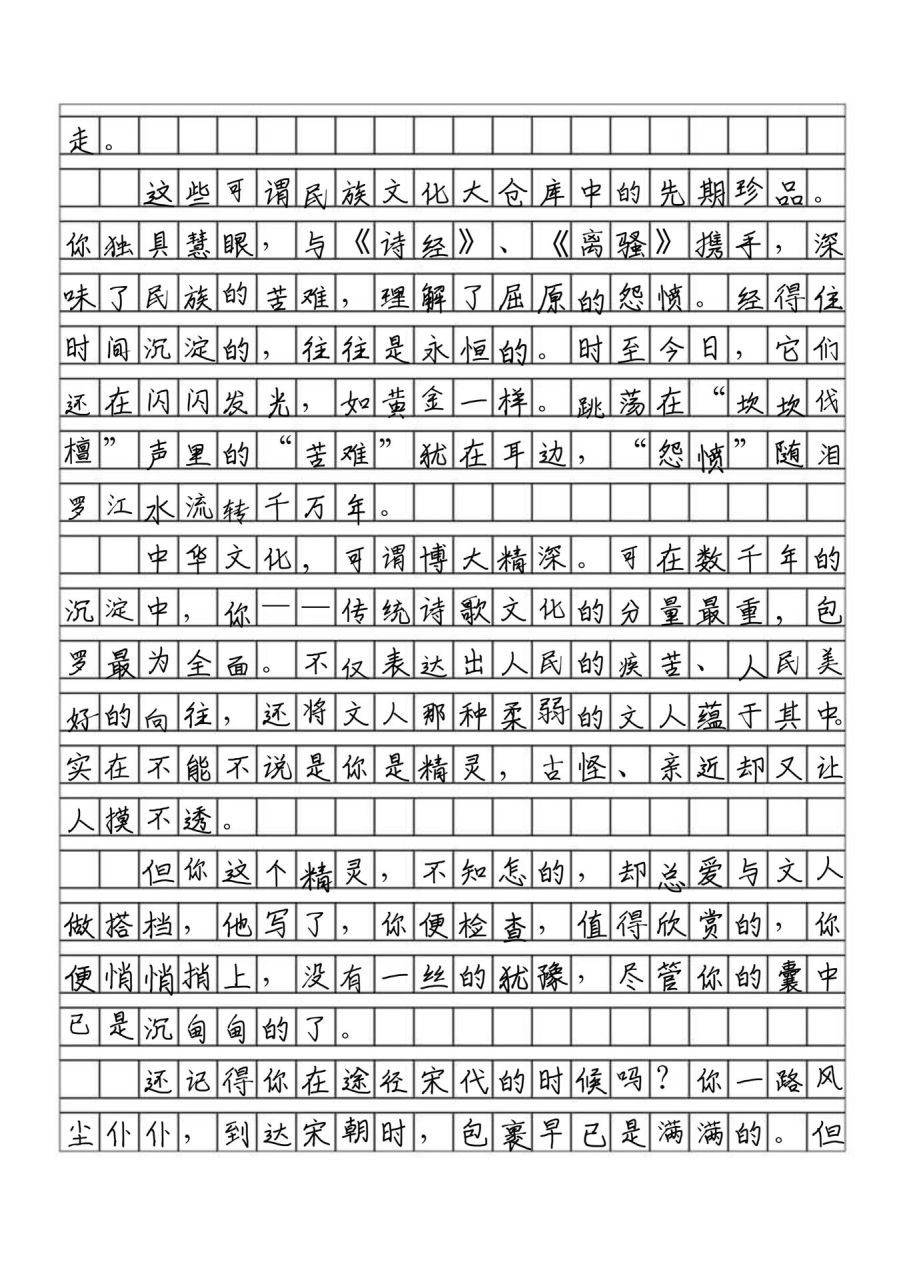 走。
这些可谓民族文化大仓库中的先期珍品。
你独具慧眼，与《诗经》、《离骚》携手，深
味了民族的苦难，理解了屈原的怨愤。经得住
时间沉淀的，往往是永恒的。时至今日，它们
还在闪闪发光，如黄金一样。跳荡在“坎坎伐
檀”声里的“苦难”犹在耳边，“怨愤”随泪
罗江水流转千万年。
中华文化，可谓博大精深。可在数千年的
沉淀中，你——传统诗歌文化的分量最重，包
罗最为全面。不仅表达出人民的疾苦、人民美
好的向往，还将文人那种柔弱的文人蕴于其中。
实在不能不说是你是精灵，古怪、亲近却又让
人摸不透。
但你这个精灵，不知怎的，却总爱与文人
做搭档，他写了，你便检查，值得欣赏的，你
便悄悄捎上，没有一丝的犹豫，尽管你的囊中
已是沉甸甸的了。
还记得你在途径宋代的时候吗？你一路风
尘仆仆，到达宋朝时，包裹早已是满满的。但